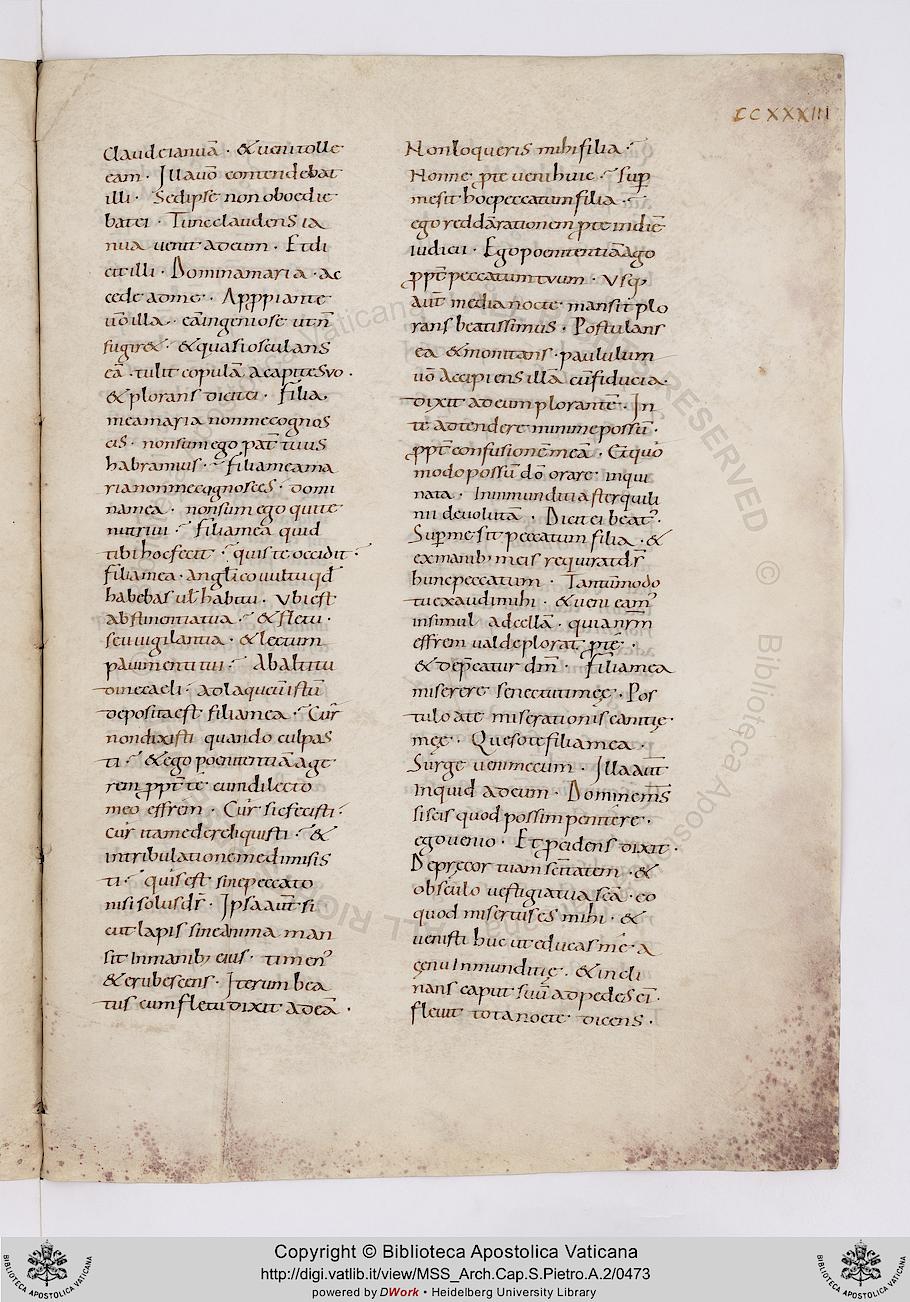 CCXXXIII
Claude ianuā · & ueni tolle
eam · Illa uō contendebat
illi · Sed ipse non oboedie
bat ei · Tunc claudens ia
nua uenit ad eum · Et di
cit illi · Domina maria · ac
cede ad me · Apppiante
uō illa · eā ingeniose ut n̄
fugir& · & quasi osculans
eā · tulit copulā a capite suo ·
& plorans dicit ei · Filia
mea maria non me cognos
cis · non sum ego pat̄ tuus
habramius · filia mea ma
ria non me cognosces · domi
na mea · non sum ego qui te
nutriui · filia mea quid
tibi hoc fecit · quis te occidit ·
filia mea · anglico uultu qd̄
habebas ul̄ habitu · Vbi est
abstinentia tua · & fletu ·
seu uigilantia · & lectum
pauimenti tui · Ab altitu
dine caeli · ad laqueū istū
deposita est filia mea · Cur
non dixisti quando culpas
ti · & ego poenitentiā age
rem ppt̄ te cum dilecto
meo effrem · Cur sic fecisti ·
cur ita me dereliquisti · &
in tribulatione me dimisis
ti · quis est sine peccato
nisi solus ds̄ · Ipsa aut̄ si
cut lapis sine anima man
sit in manib; eius · timen?
& erubescens · Iterum bea
tus cum fletu dixit ad eā ·
Non loqueris mihi filia ·
Nonne p te ueni huic · Sup
me sit hoc peccatum filia ·
ego reddā rationem p te in diē
iudicii · Ego poenitentiā ago
ppt̄ peccatum tuum · Vsq;
aut̄ media nocte mansit plo
rans beatissimus · Postulans
ea & monitans · paululum
uō accipiens illa cū fiducia ·
dixit ad eum plorante · In
te adtendere minime possū ·
ppt̄ confusionē meā · Et quo
modo possū dō orare · inqui
nata · Inmunditia sterquili
nii deuolutā · Dicit ei beat? ·
Sup me sit peccatum filia · &
ex manib; meis requirat ds̄
hunc peccatum · Tantū modo
tu exaudi mihi · & ueni eam?
insimul ad cellā · quia nr̄m
effrem ualde plorat p te ·
& depcatur dm̄ · Filia mea
miserere senectuti meę · Pos
tulo a te miserationis canitię
meę · Queso te filia mea ·
Surge ueni mecum · Illa aut̄
inquid ad eum · Domine m̄s
si scis quod possim penitere ·
ego uenio · Et pcidens dixit ·
Depręcor tuam sc̄itatem · &
obsculo uestigia tua sc̄a · eo
quod misertus es mihi · &
uenisti huc ut educas me a
cęnu inmunditię · & incli
nans caput suū ad pedes ei ·
fleuit tota nocte dicens ·
Copyright © Biblioteca Apostolica Vaticana
http://digi.vatlib.it/view/MSS_Arch.Cap.S.Pietro.A.2/0473
powered by DWork • Heidelberg University Library